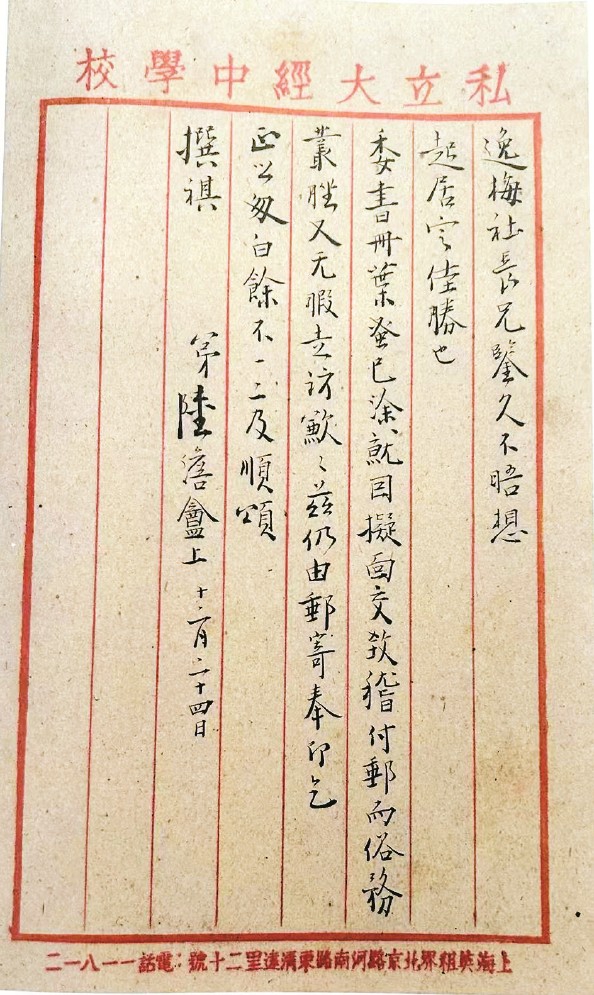 私立大經中學校
逸梅社長兄鑒久不晤想
起居定佳勝也
委書冊葉蚤已涂就因擬面交致稽付郵而俗務
叢脞又无暇走訪歉〻茲仍由郵寄奉即乞
正之匆白餘不一二及順頌
撰祺
弟陸澹盦上 十二月二十四日
上海英租界北京路河南路東清遠里二十號：電話一一八一二